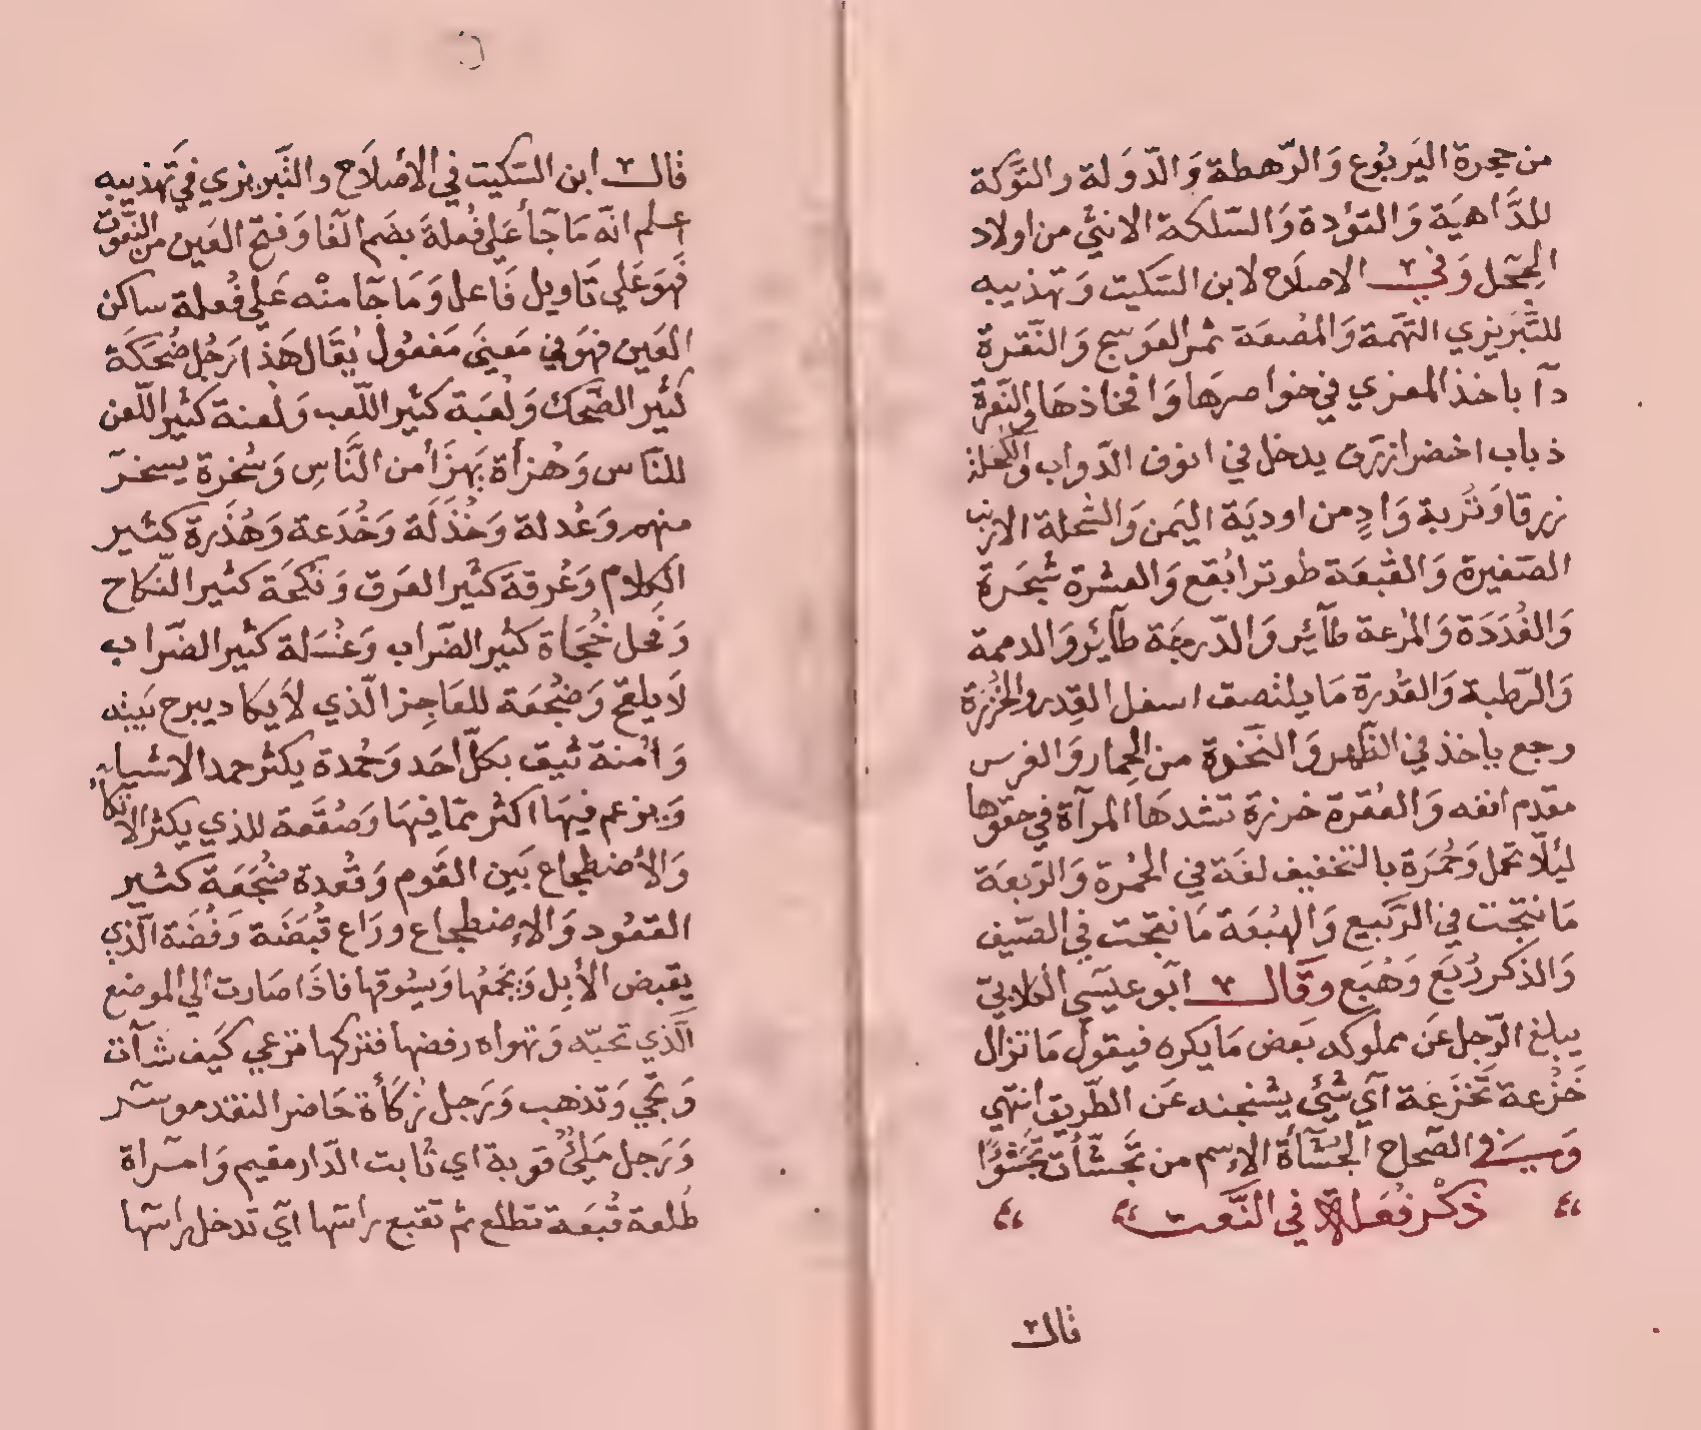 من حجرة اليَربُوع وَالرّهطة وَالدّوَلة والتوَّكة
للدَّاهيَة وَالتؤدة وَالسّلكة الانثي من اولاد
الحِجَل وَفي الاصلَاح لابن السّكيت وَتهذيبه
للتَّبَريزي التهَمة وَالمصَعَة ثمر العَوسج وَالنّقرة
دآ باخذ المعزي في خواصرهَا وَافخاذهَا وَالنّعرة
ذباب اخضر ازرَق يدخل في انوف الدّواب
زرقا وَتُربة وَادٍ من اوديَة اليَمن وَالشحلة الارنب
الصّغيرة وَالقُبعَة طوتر ابُقع وَالعشرة شجَرة
وَالغُدَدَة وَالمُرعة طآئِر وَالدّرجَة طآئِر وَالدممة
وَالرّطبة وَالقُدرة مَا يلتصق اسفل القِدر والخُزرة
وجع ياخذ في الظّهر وَالنّخرة من الحِمار وَالفرس
مقدم انفه وَالعُقرة خرزة تشدهَا المرآة في حقوها
ليُلّا تحمل وَحُمَرة بالتخفيف لغَة في الحُمرة وَالرّبعَة
مَا نتجَت في الرّبيع وَالهُبعَة مَا نتجت في الصّيف
وَالذكر رُبَع وَهُبَع وَقَال ابَو عيسَي الكلابيّ
يبلغ الرّجل عَن مملوكه بَعض مَا يكره فيقول مَا تزال
خُزعة تخْزَعَة آي شيُ يشنجنه عَن الطّريق انتهي
وَسيَفي الصّحاح الجُشَآة الإسم من تجَشّأت تجشؤًا
ذكْر فُعَلة في النَّعت
قال
قال ابن السّكيت في الأصلَاح والتَّبريزي في تَهذيبه
اعلم انّه مَا جآ عَلي فُعلةَ بضَم الفَا وَفتح العَين من النّعُوت
فَهوَ عَلي تَاويل فَاعل وَمَا جَآ منْه عَلي فُعلة ساكن
العَين فهوَ في مَعنَي مَفعُول يُقَال هَذا رَجُل ضُحَكَة
كثير الضّحك وَلعَبَة كثير اللّعب وَلعنة كثير اللّعن
للنّاس وَهُزأة يَهزَأ من النَّاسِ وَسُخرة يسخر
منهم وَعُدلة وَخُذَلَة وَخُدَعة وَهُذَرة كثير
الكلام وَعُرقة كثير العَرق وَنُكحَة كثير النّكاح
وَفحل خُجَاة كثير الضّراب وَغُسَلة كثير الضّراب
لَا يلقح وَضُجعَة للعَاجِز الّذي لَا يَكاد يبرح بَيته
وَامُنة يثق بكلّ احَد وَحُمدة يكثر حمد الاشيا
وَيزعم فيهَا اكثر ممّا فيهَا وَضُقعَة للذي يكثر الاتكا
وَالأضطجاع بَين القَوم وَقُعدة ضُجعَة كثير
القعُود وَالإضطجاع ورَاع قُبَضَة رَفُضَة الّذي
يَقبض الأبل وَيجَمعُها وَيسُوقها فاذَا صَارت الي الموضع
الّذي تحبّه وَتهواه رفضها فتركها ترعي كَيف شَآت
وَتجي وَتذهب وَرَجل زُكَأة حَاضر النقد موسر
وَرَجل مَليُ قوبة اي ثابت الدّار مقيم وَامرَاة
طُلعة قُبعَة تطلع ثم تقبع راسَها ايَ تدخل راسَها